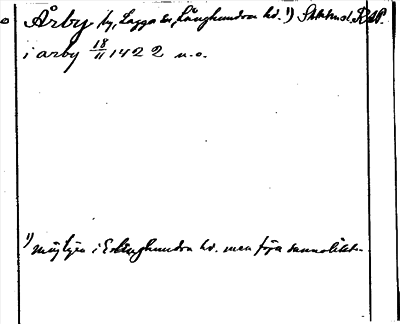 Årby by, Lagga sn, Långhundra hd. 1) Sthlm d. RAP.
i arby 18/11 1422 u.o.
1) möjligen i Erlinghundra hd. men föga sannolikt.